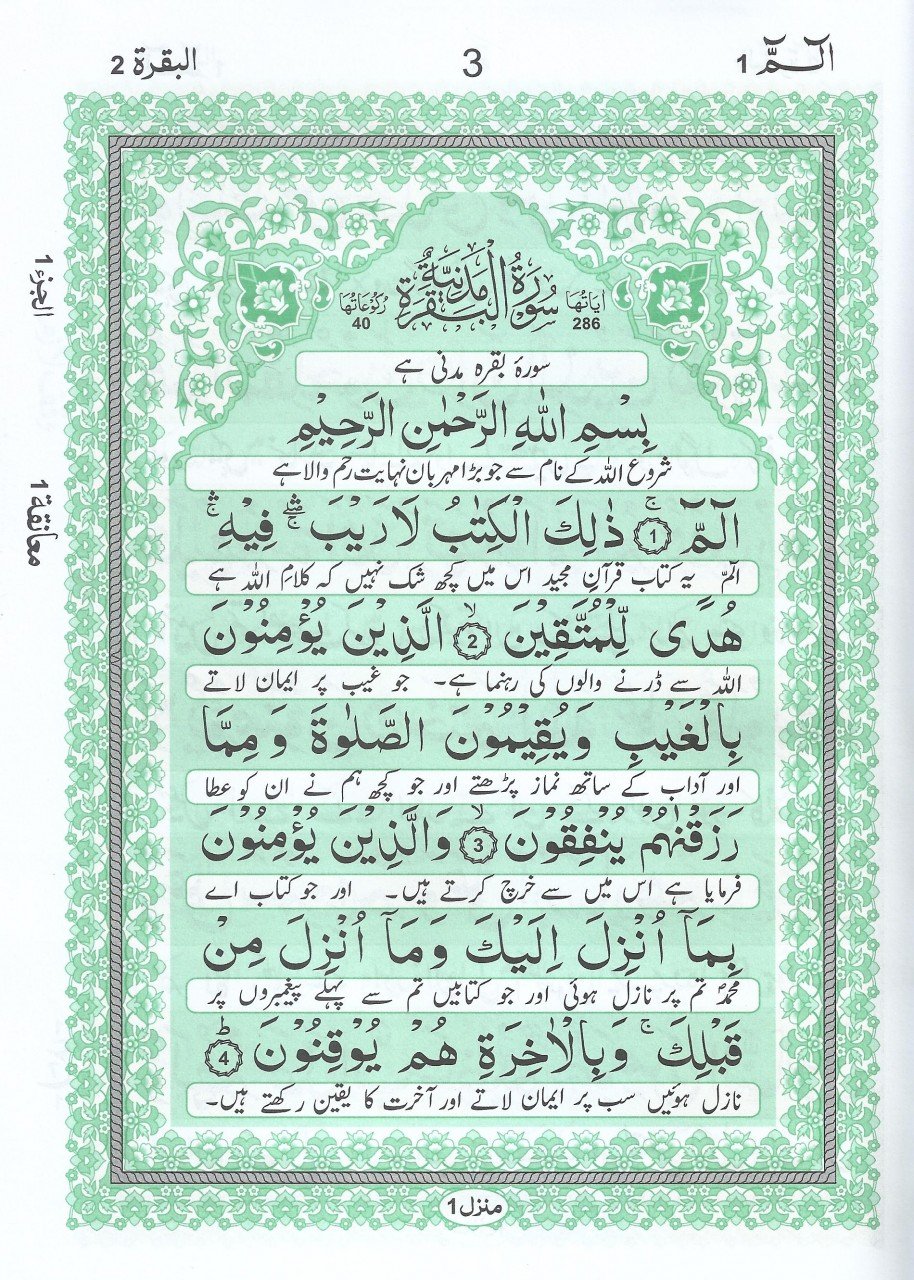 الٓمّٓ 1
3
البقرة 2
اٰيَاتُهَا
286
سُوْرَةُ الْبَقَرَةِ مَدَنِيَّةٌ
رُكُوْعَاتُهَا
40
سورۂ بقرہ مدنی ہے
بِسْمِ اللّٰهِ الرَّحْمٰنِ الرَّحِيْمِ
شروع اللہ کے نام سے جو بڑا مہربان نہایت رحم والا ہے
الٓمّٓ ۚ 1 ذٰلِكَ الْكِتٰبُ لَا رَيْبَ ۛۖۚ فِيْهِ ۛۚ
الٓمٓ یہ کتاب قرآنِ مجید اس میں کچھ شک نہیں کہ کلامِ اللہ ہے
هُدًى لِّلْمُتَّقِيْنَ ۙ 2 الَّذِيْنَ يُؤْمِنُوْنَ
اللہ سے ڈرنے والوں کی رہنما ہے۔ جو غیب پر ایمان لاتے
بِالْغَيْبِ وَيُقِيْمُوْنَ الصَّلٰوةَ وَمِمَّا
اور آداب کے ساتھ نماز پڑھتے اور جو کچھ ہم نے ان کو عطا
رَزَقْنٰهُمْ يُنْفِقُوْنَ ۙ 3 وَالَّذِيْنَ يُؤْمِنُوْنَ
فرمایا ہے اس میں سے خرچ کرتے ہیں۔ اور جو کتاب اے
بِمَآ اُنْزِلَ اِلَيْكَ وَمَآ اُنْزِلَ مِنْ
محمدؐ تم پر نازل ہوئی اور جو کتابیں تم سے پہلے پیغمبروں پر
قَبْلِكَ ۚ وَبِالْاٰخِرَةِ هُمْ يُوْقِنُوْنَ ؕ 4
نازل ہوئیں سب پر ایمان لاتے اور آخرت کا یقین رکھتے ہیں۔
الجزء 1
معانقة 1
منزل 1